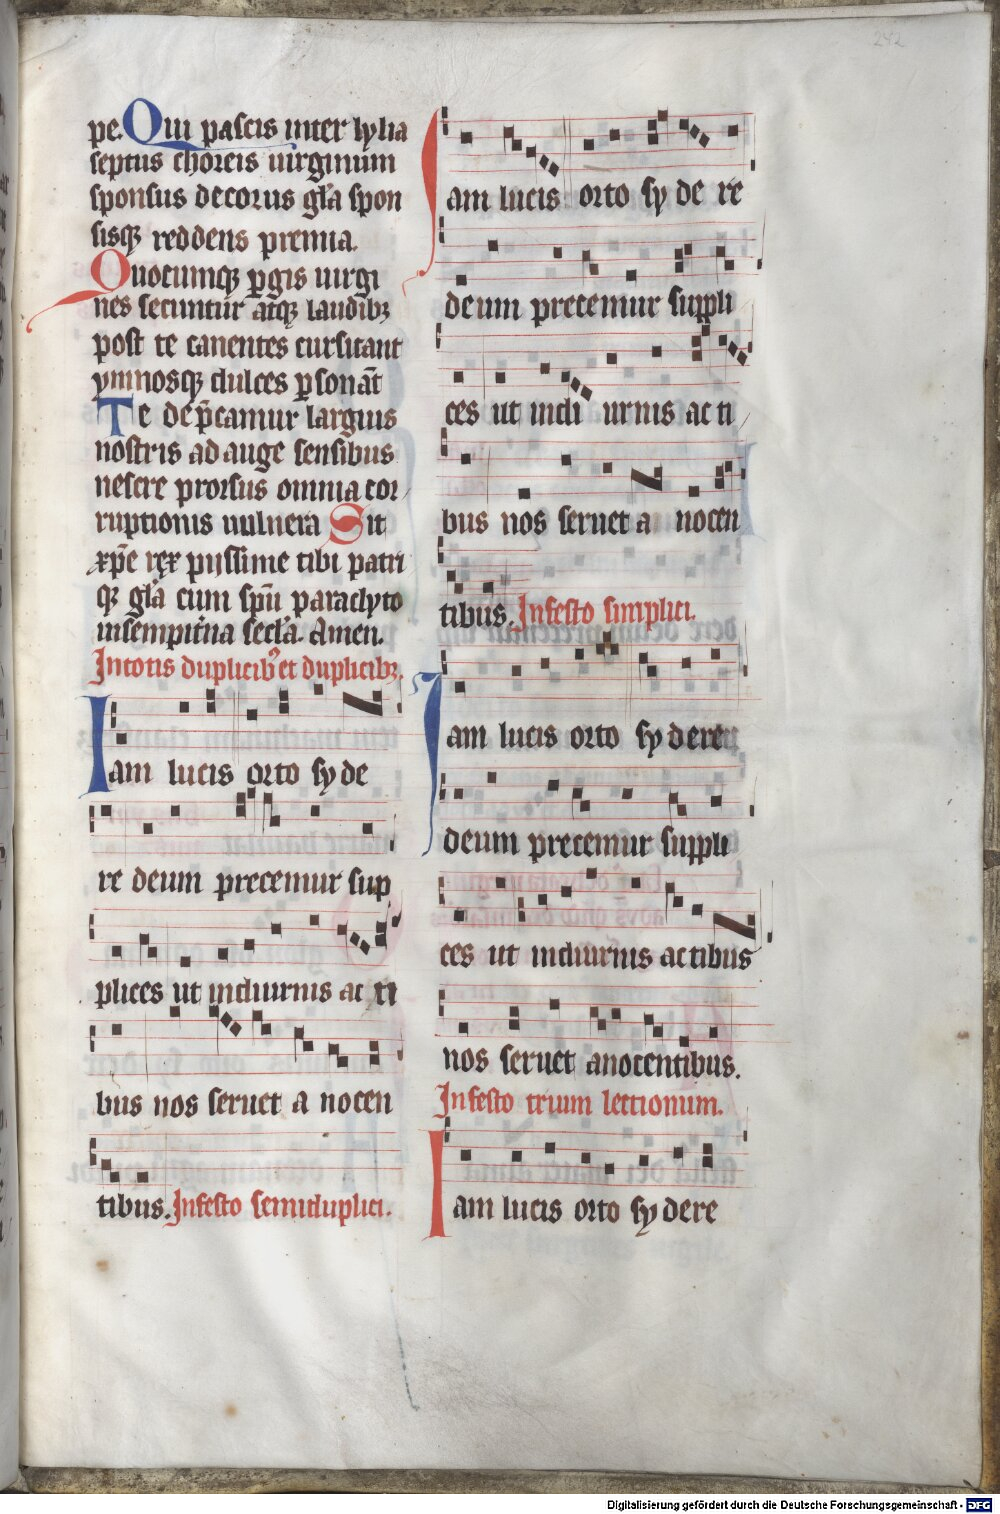 242
pe. Qui pascis inter lylia
septus choreis uirginum
sponsus decorus gl̄a spon
sisqꝫ reddens premia.
Quocumqꝫ ꝑgis uirgi
nes secuntur atqꝫ laudibꝫ
post te canentes cursitant
ymnosqꝫ dulces ꝑsonāt
Te dep̄camur largius
nostris ad auge sensibus
nescire prorsus omnia cor
ruptionis uulnera Sit
xp̄e rex pijssime tibi patri
qꝫ gl̄a cum spū paraclyto
insempit̉na secl̄a. Amen.
Intotis duplicibꝰ et duplicibꝫ.
Iam lucis orto syde
re deum precemur sup
plices ut indiurnis ac ti
bus nos seruet a nocen
tibus. Infesto semiduplici.
Iam lucis orto sy de re
deum precemur suppli
ces ut indi urnis ac ti
bus nos seruet a nocen
tibus. Infesto simplici.
Iam lucis orto sydere
deum precemur suppli
ces ut indiurnis actibus
nos seruet anocentibus.
Infesto trium lectionum.
Iam lucis orto sydere
Digitalisierung gefördert durch die Deutsche Forschungsgemeinschaft - DFG